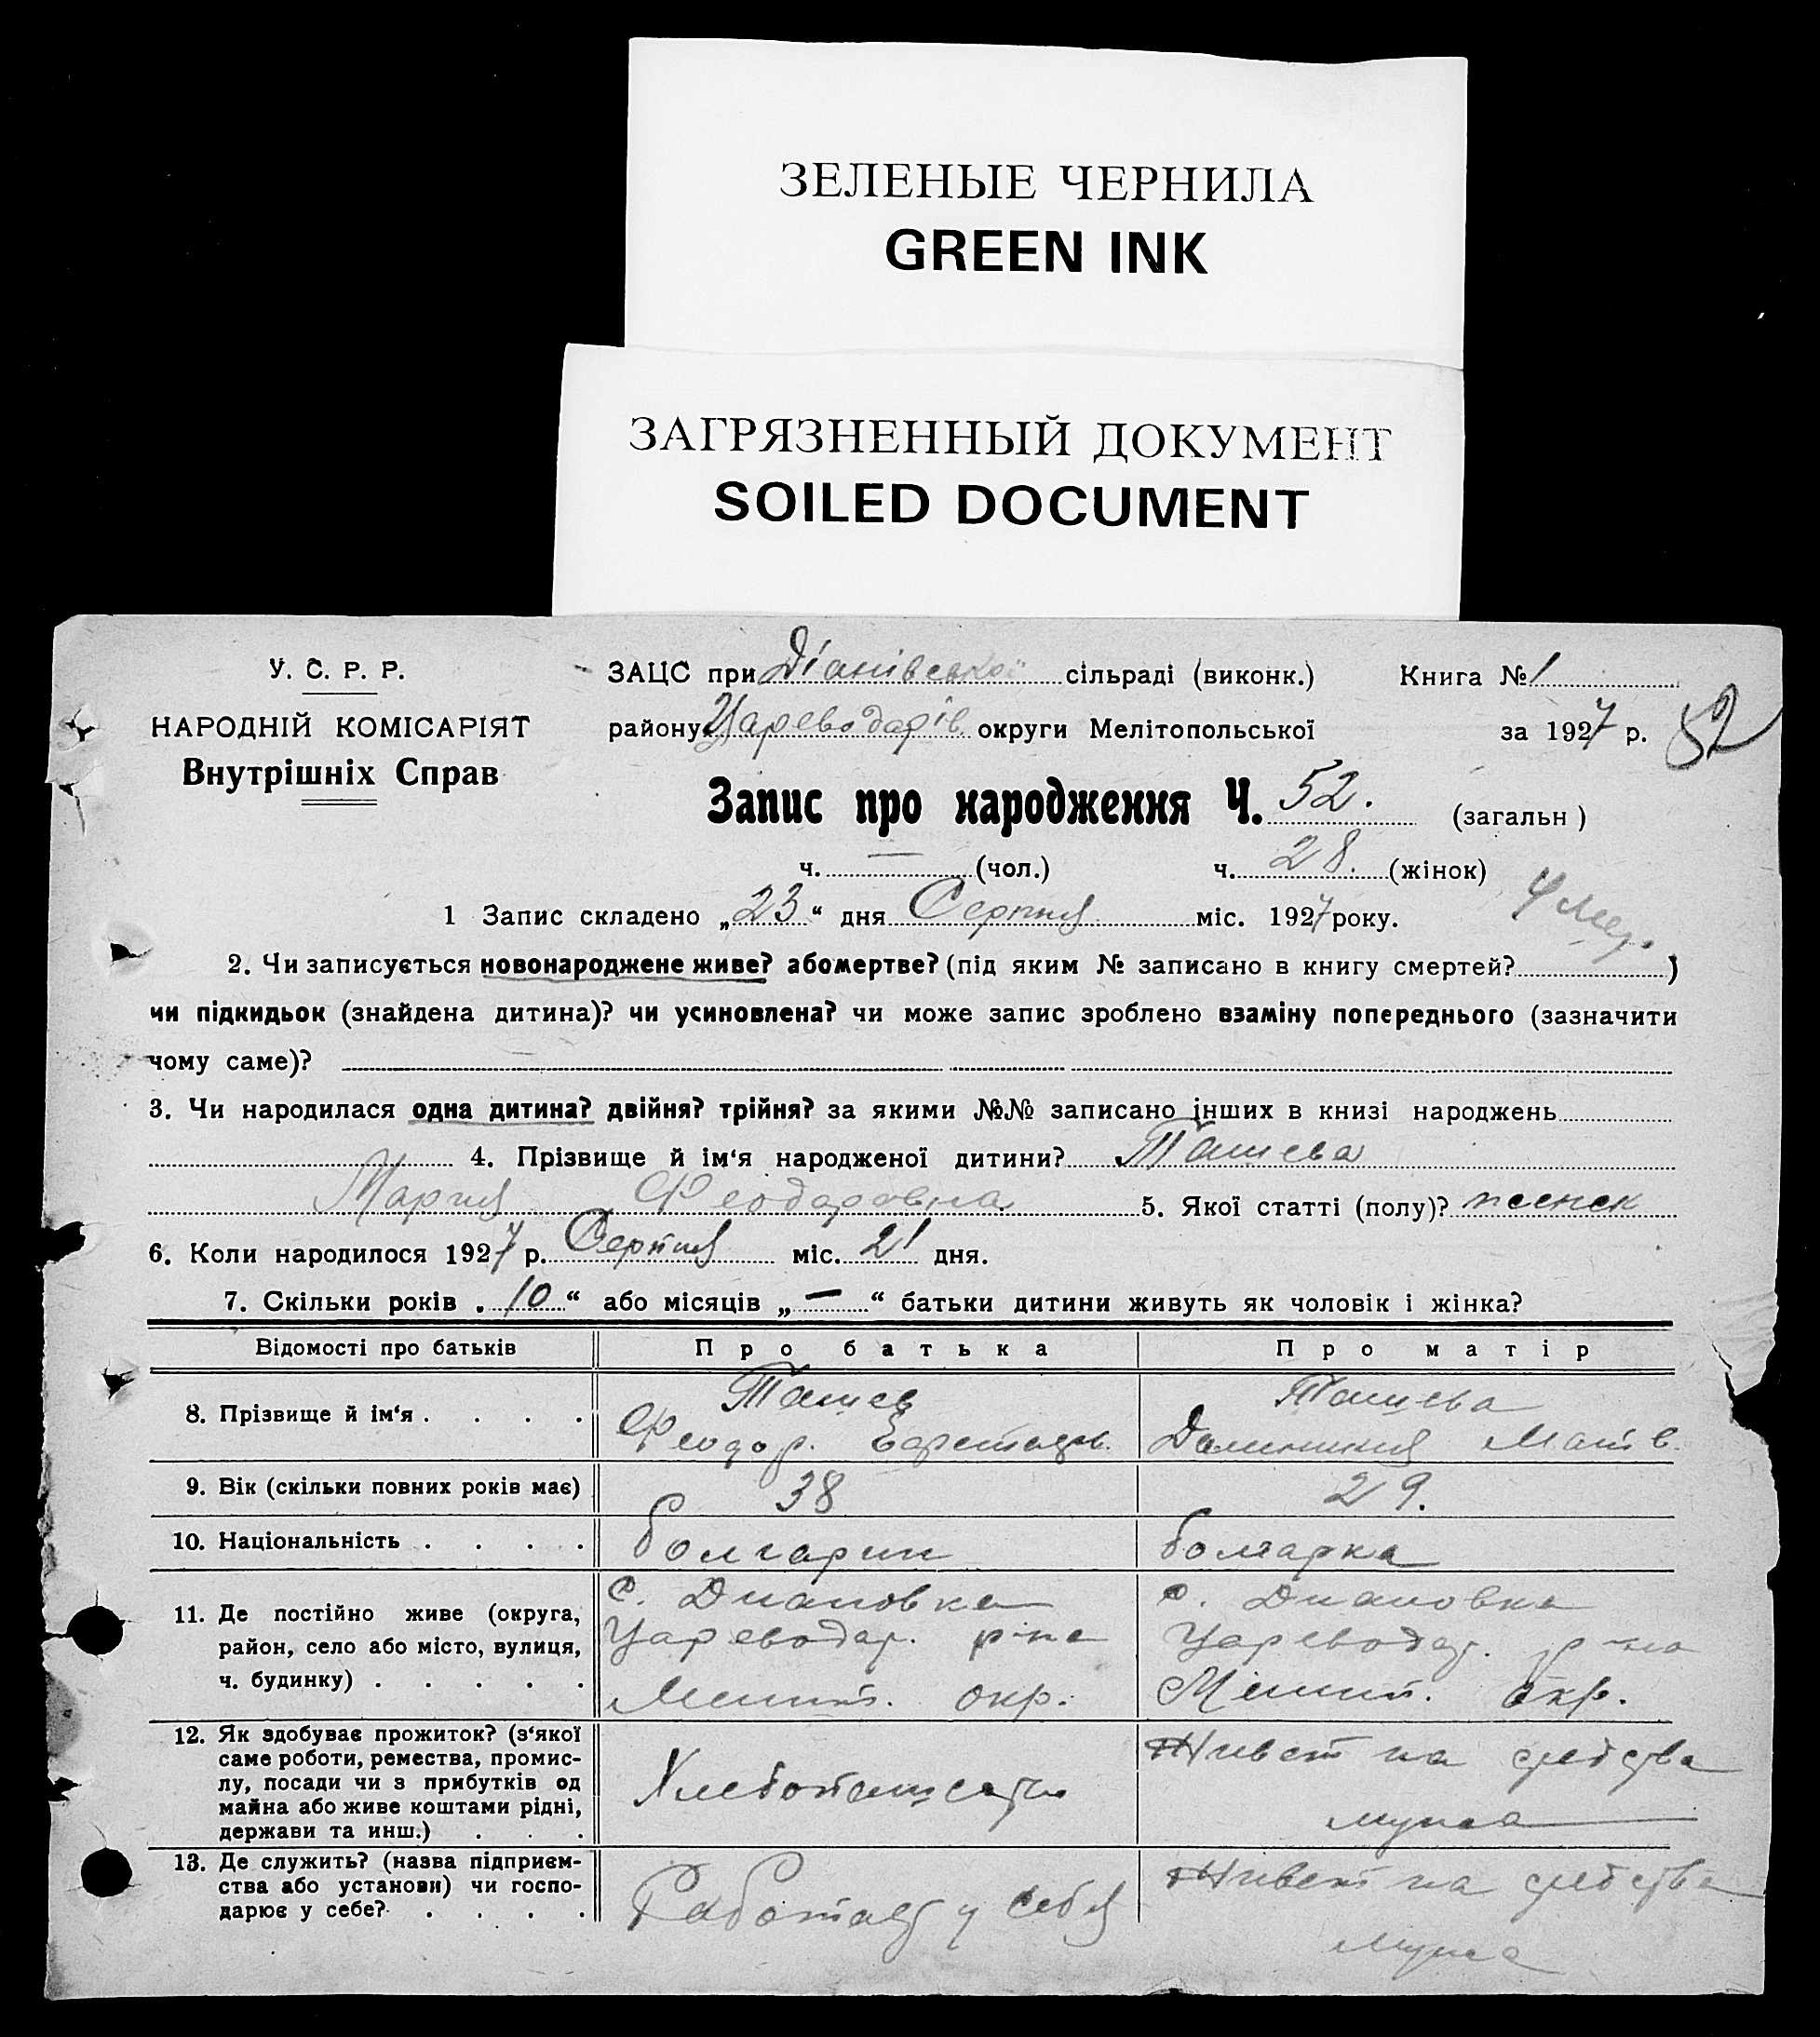 ЗЕЛЕНЫЕ ЧЕРНИЛА
GREEN INK
ЗАГРЯЗНЕННЫЙ ДОКУМЕНТ
SOILED DOCUMENT
У. С. Р. Р.
НАРОДНІЙ КОМІСАРІЯТ
Внутрішніх Справ
ЗАЦС при Діанівської сільраді (виконк.) Книга № 1
району Цареводарів. округи Мелітопольської за 1927 р.
52
Запис про народження Ч. 52. (загальн)
ч. — (чол.) ч. 28. (жінок)
1 Запис складено „23“ дня Серпня міс. 1927 року.
2. Чи записується новонароджене живе? або мертве? (під яким № записано в книгу смертей? )
чи підкидьок (знайдена дитина)? чи усиновлена? чи може запис зроблено взаміну попереднього (зазначити
чому саме)?
3. Чи народилася одна дитина? двійня? трійня? за якими №№ записано інших в книзі народжень
4. Прізвище й ім‘я народженої дитини? Ташева
Мария Феодоровна 5. Якої статті (полу)? женск
6. Коли народилося 1927 р. Серпня міс. 21 дня.
7. Скільки років „10“ або місяців „—“ батьки дитини живуть як чоловік і жінка?
Відомості про батьків Про батька Про матір
8. Прізвище й ім‘я . . . . Ташев Ташева
Феодор. Матв.
9. Вік (скільки повних років має) 38 29.
10. Національність . . . . болгарин болгарка
11. Де постійно живе (округа, район, село або місто, вулиця, ч. будинку) . . . . .
с. Диановка с. Диановка
Цареводар. р-на Цареводар. р-на
Мелит. окр. Мелит. окр.
12. Як здобуває прожиток? (з‘якої
саме роботи, ремества, промис-
лу, посади чи з прибутків од
майна або живе коштами рідні,
держави та инш.) . . .
Хлебопашеств Живет на средства
мужа
13. Де служить? (назва підприєм-
ства або установи) чи госпо-
дарює у себе? . . . .
Работает у себя Живет на средства
мужа